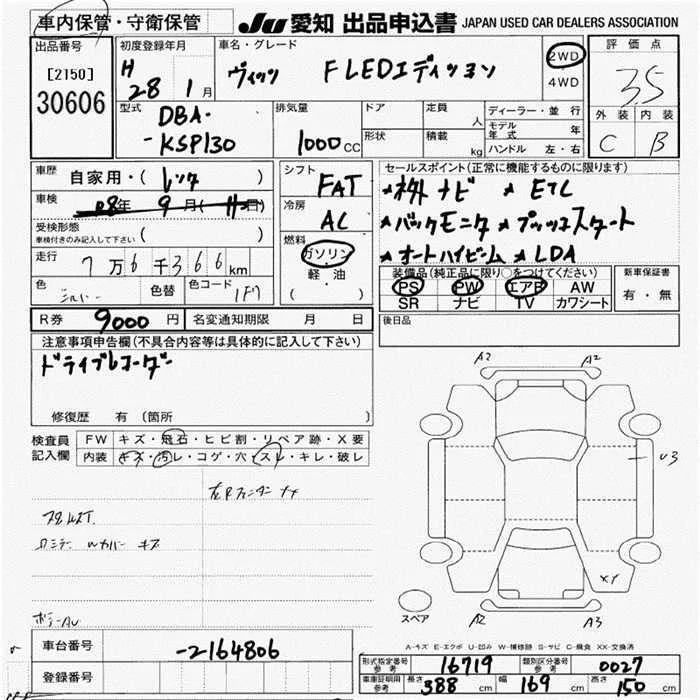 車内保管・守衛保管
JU 愛知 出品申込書 JAPAN USED CAR DEALERS ASSOCIATION
出品番号
[2150]
30606
初度登録年月
H 28 1 月
車名・グレード
ヴィッツ F LEDエディション
2WD
4WD
評価点
3.5
外装 内装
C B
型式
DBA-
-KSP130
排気量
1000 CC
ドア
定員 人
形状
積載 kg
ディーラー・並行
モデル年式 年
ハンドル 左・右
車歴
自家用・( レンタ )
車検
R8年 9月(11日)
受検形態
車検付きのみ記入して下さい ( )
走行
7万6千366km
色
シルバー
色替
色コード
1F7
シフト
FAT
冷房
AC
燃料
ガソリン
軽・油
( ・ )
セールスポイント(正常に機能するものに限ります)
★社外ナビ ★ ETC
★バックモニタ ★プッシュスタート
★オートハイビーム ★LDA
装備品(純正品に限り○をつけてください)
PS PW エアB AW
SR ナビ TV カワシート
新車保証書
有・無
R券 9000 円 名変通知期限 月 日
後日品
注意事項申告欄(不具合内容等は具体的に記入して下さい)
ドライブレコーダー
修復歴 有 (箇所 )
検査員記入欄
FW キズ・飛石・ヒビ割・リペア跡・X要
内装 キズ・汚レ・コゲ・穴・スレ・キレ・破レ
キズ
A2 A2
U3
XY
スペア
A2 A3
車台番号
-2164806
登録番号
A-キズ E-エクボ U-凹み W-補修跡 S-サビ C-腐食 XX-交換済
形式指定番号 参考 16719 類別区分番号 参考 0027
車庫証明用 参考 長さ 388 cm 幅 169 cm 高さ 150 cm